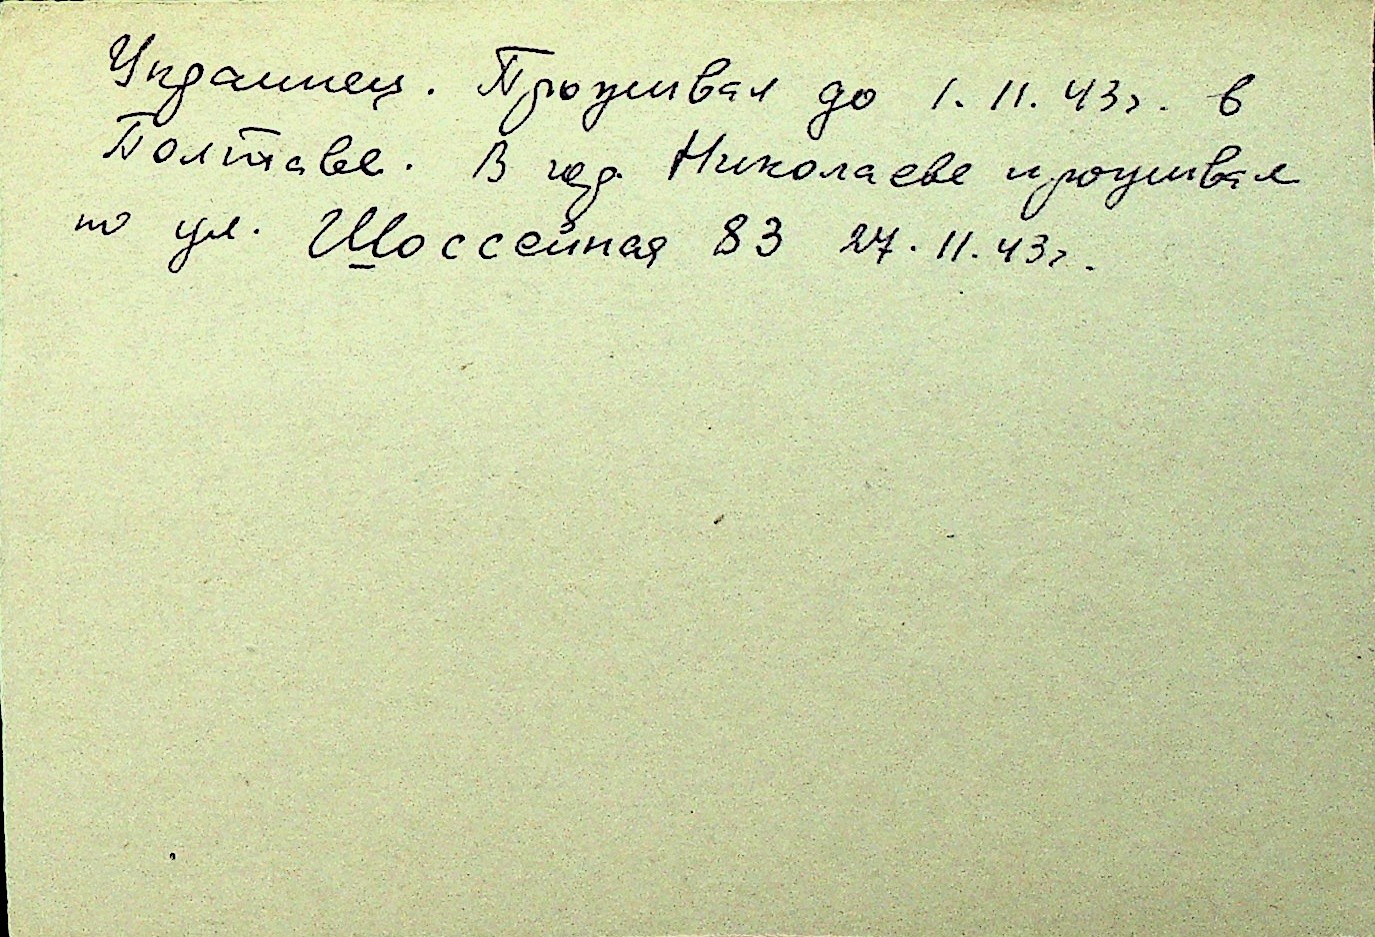 Украинец. Проживал до 1.11.43г. в
Полтаве. В гор. Николаеве проживал
по ул. Шоссейная 83 27.11.43г.